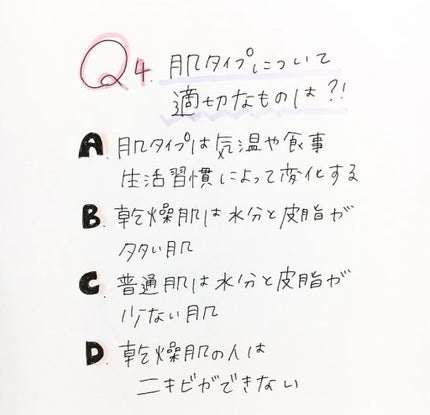 Q4. 肌タイプについて
適切なものは?!
A. 肌タイプは気温や食事
生活習慣によって変化する
B. 乾燥肌は水分と皮脂が
多い肌
C. 普通肌は水分と皮脂が
少ない肌
D. 乾燥肌の人は
ニキビができない